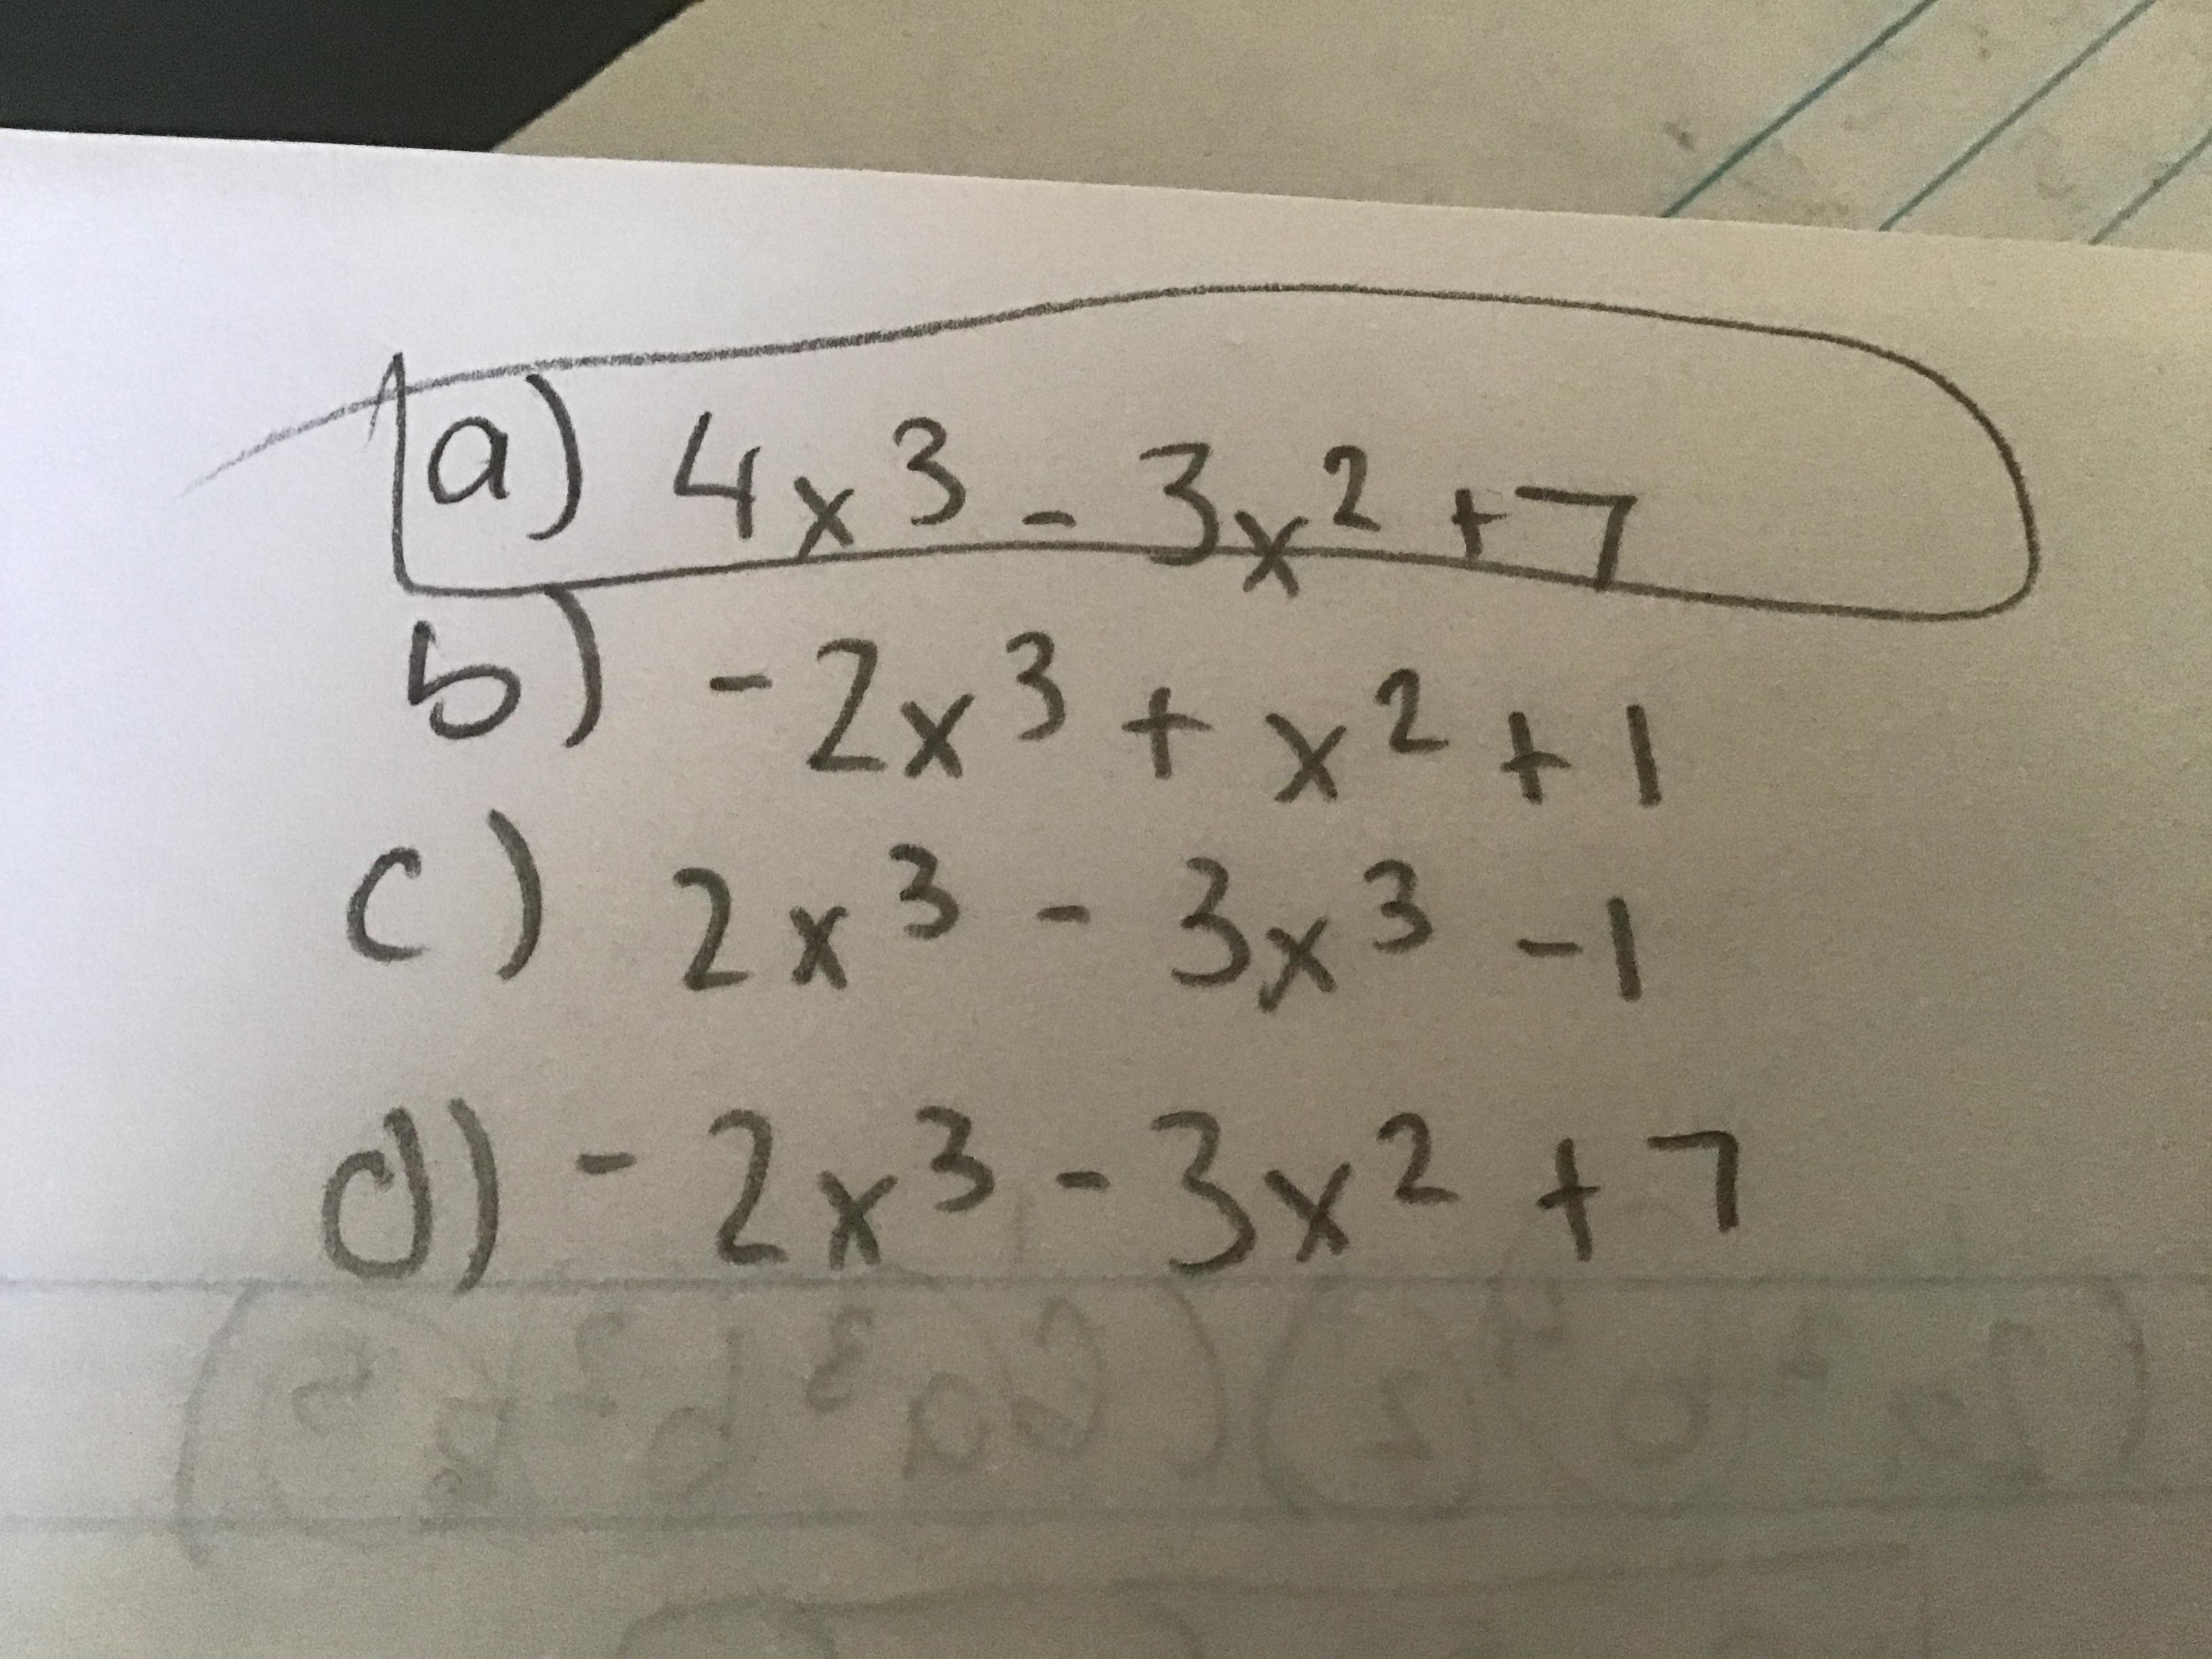 a) 4x³ - 3x² + 7
b) -2x³ + x² + 1
c) 2x³ - 3x³ - 1
d) -2x³ - 3x² + 7